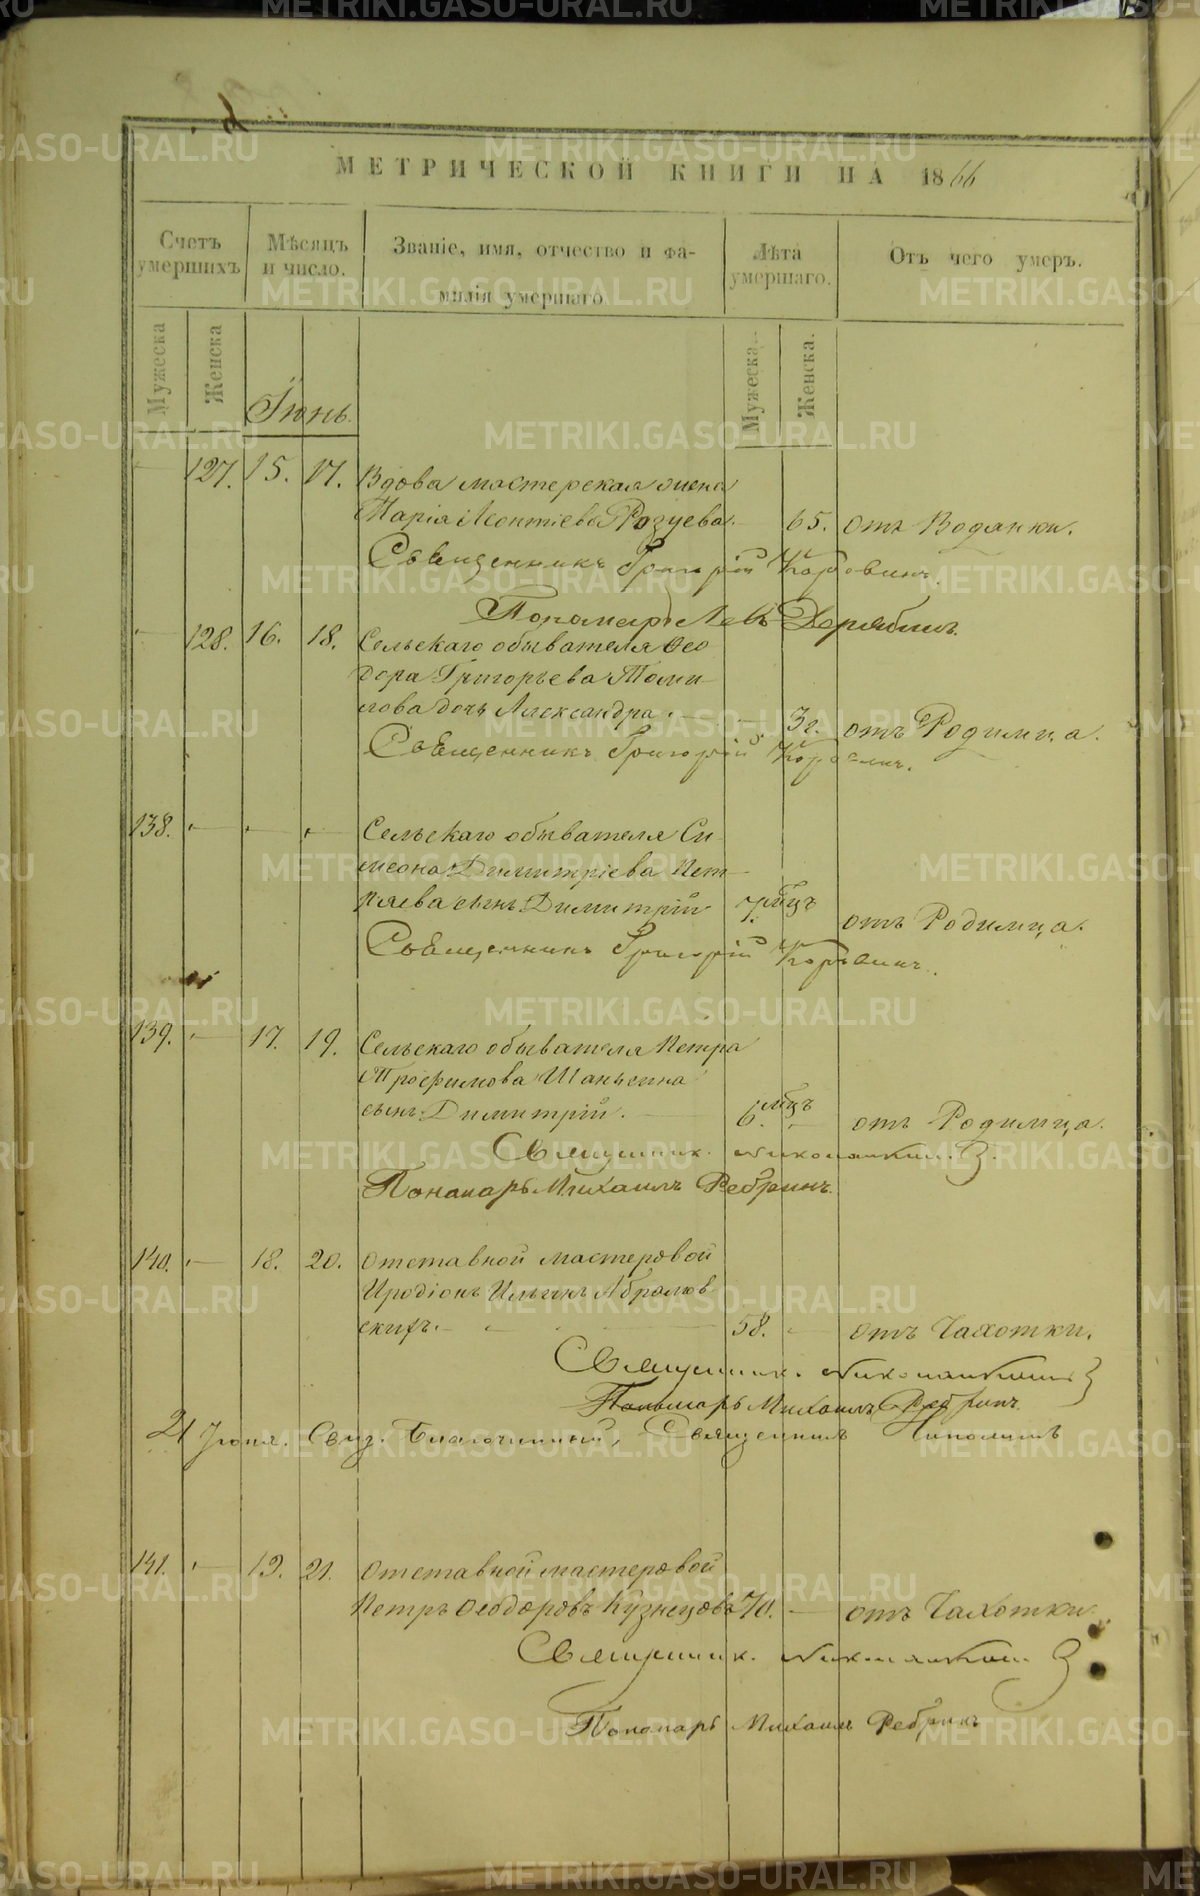 МЕТРИЧЕСКОЙ КНИГИ НА 1866
Счетъ умершихъ
Мѣсяцъ и число.
Званіе, имя, отчество и фамилія умершаго
Лѣта умершаго.
Отъ чего умеръ.
Мужеска
Женска
Мужеска.
Женска.
Іюнь.
127. 15. 17. Вдова мастерская жена
Марія Леонтіева 65. отъ Водянки.
Священникъ Григорій Коровинъ.
Пономарь Левъ Дерябинъ.
128. 16. 18. Сельскаго обывателя Ѳео
дора Григорьева Томи
лова дочь Александра. 3 г. отъ Родимца.
Священникъ Григорій Коровинъ.
138. Сельскаго обывателя Си
меона Димитріева
сынъ Димитрій 7 мцъ отъ Родимца.
Священникъ Григорій Коровинъ.
139. 17. 19. Сельскаго обывателя Петра
Трофимова
сынъ Димитрій. 6. мцъ отъ Родимца.
Священник.
Пономарь Михаилъ Ребринъ.
140. 18. 20. Отставной мастеровой
Иродіонъ Ильинъ Абрамов
скихъ. 58. отъ Чахотки.
Священник.
Пономарь Михаилъ Ребринъ
21 Іюня. Благочинный, Священникъ
141. 19. 21. Отставной мастеровой
Петръ Ѳеодоровъ Кузнецовъ 70. отъ Чахотки.
Священник.
Пономарь Михаилъ Ребринъ
METRIKI.GASO-URAL.RU